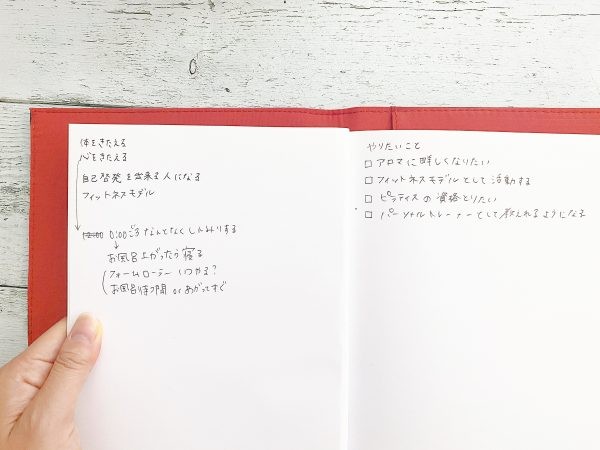 体をきたえる
心をきたえる
自己啓発を出来る人になる
フィットネスモデル
12:00 0:00ごろなんとなくしんみりする
お風呂上がったら寝る
フォームローラーいつやる?
お風呂待つ間 or あがってすぐ
やりたいこと
□ アロマに詳しくなりたい
□ フィットネスモデルとして活動する
□ ピラティスの資格とりたい
□ パーソナルトレーナーとして教えれるようになる